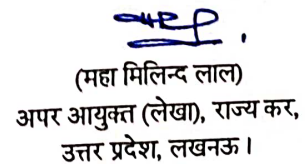 (महा मिलिन्द लाल)
अपर आयुक्त (लेखा), राज्य कर,
उत्तर प्रदेश, लखनऊ।